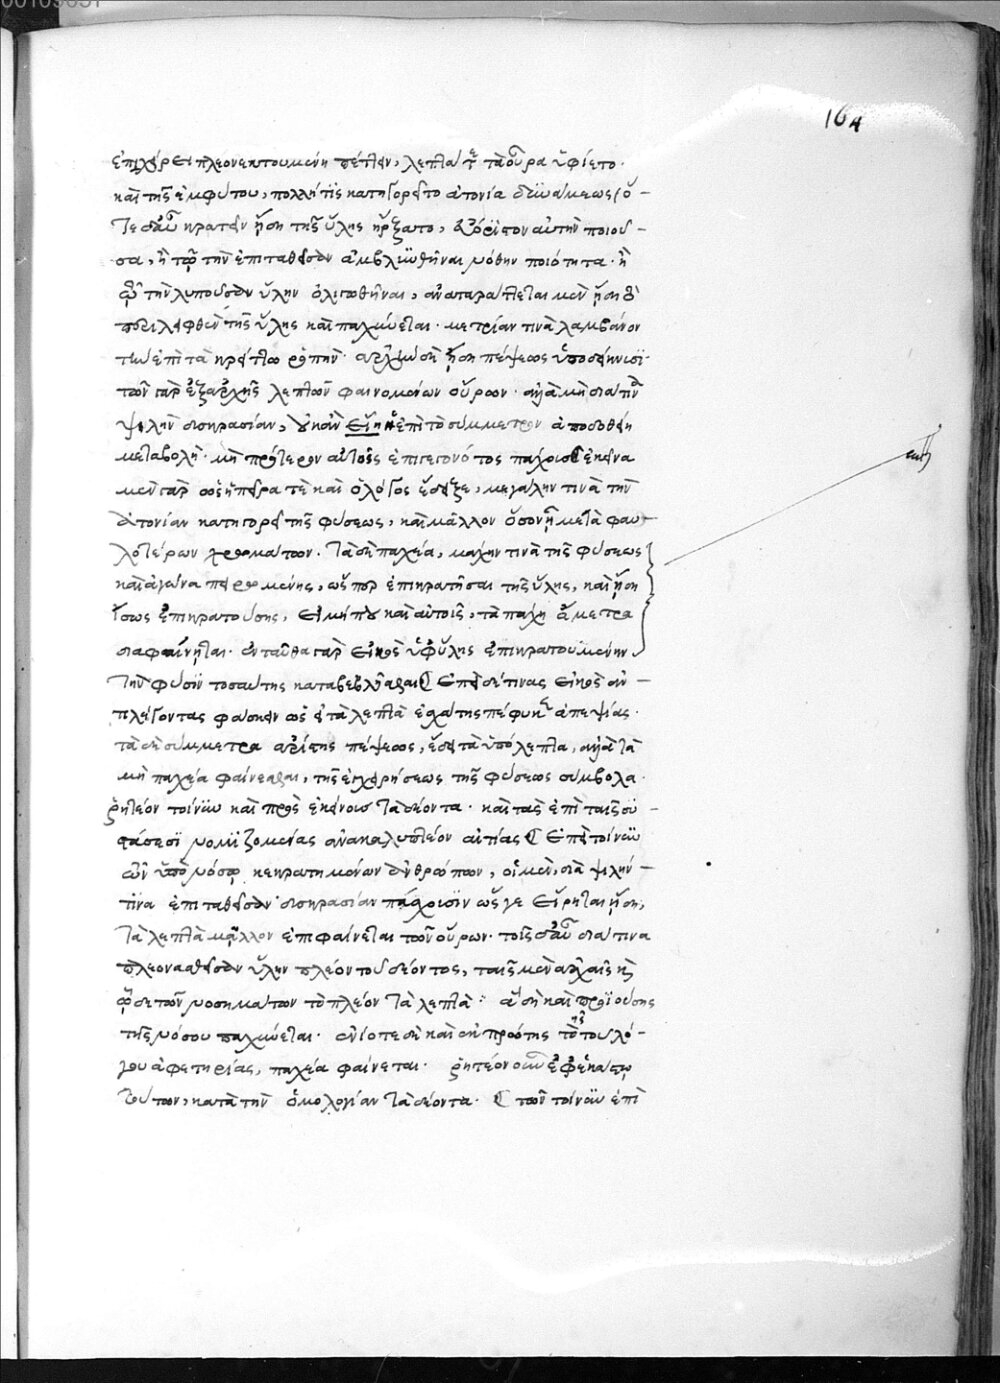 164
ἐπιχειρεῖ πλεονεκτουμένη πέττειν, λεπτὰ τὰ οὖρα ὑφίετο.
καὶ τῆς ἐμφύτου, πολλή τις κατηγορεῖτο ἀτονία δυνάμεως, ὅ-
τε δ' αὖ κρατεῖν ἤδη τῆς ὕλης ἤρξατο, ἀόριστον αὐτὴν ποιοῦ-
σα, ἢ τῷ τὴν ἐπιταθεῖσαν ἀμβλυνθῆναι νόθην ποιότητα. ἢ
τῷ τὴν λυποῦσαν ὕλην ὀλιγωθῆναι, ἀναταράττεται μὲν ἤδη
τῆς ὕλης καὶ παχύνεται. μετρίαν τινὰ λαμβάνον
των ἐπὶ τὰ κρείττω ῥοπὴν. ἀρχὴν δὲ ἤδη πέψεως ὑποσημαίνει
τῶν γὰρ ἐξ ἀρχῆς λεπτῶν φαινομένων οὔρων. ἀλλὰ μὴ διά τινα
ψιλὴν δυσκρασίαν, οὐκ ἂν εἴη ἐπὶ τὸ σύμμετρον ἀποδοθείη
μεταβολή. μὴ πρότερον αὐτοῖς ἐπιγεγονότος πάχους ἐκεῖνα
μὲν γὰρ ὡς ἡ πεῖρα τὲ καὶ ὁ λόγος ἔδειξε, μεγάλην τινὰ τὴν
ἀτονίαν κατηγορεῖ τῆς φύσεως, καὶ μᾶλλον ὅσον ἦ μετὰ φαυ-
λοτέρων χρωμάτων. τὰ δὲ παχέα, μάχην τινὰ τῆς φύσεως
καὶ ἀγῶνα πειρωμένης, ὥσπερ ἐπικρατῆσαι τῆς ὕλης, καὶ ἤδη
ἴσως ἐπικρατούσης, εἰ μήπου καὶ αὐτοῖς, τὰ πάχη ἄμετρα
διαφαίνηται. ἐνταῦθα γὰρ εἰκὸς ὑφ' ὕλης ἐπικρατουμένην
τὴν φύσιν τοσαύτης καταβεβλῆσθαι ἐπεὶ δέ τινας εἰκὸς ἀν-
τιλέγοντας φάσκειν ὡς εἰ τὰ λεπτὰ ἐσχάτης πέφυκεν ἀπεψίας.
τὰ δὲ σύμμετρα ἀρίστης πέψεως, ἔσται τὰ ὑπόλεπτα, ἀλλὰ τὰ
μὴ παχέα φαίνεσθαι, τῆς ἐγχειρήσεως τῆς φύσεως σύμβολα.
ῥητέον τοίνυν καὶ πρὸς ἐκείνους τὰ δέοντα. καὶ τὰς ἐπὶ ταῖς συ-
στάσεσι νομιζομένας ἀνακαλυπτέον αἰτίας ἐπεὶ τοίνυν
τῶν ὑπὸ νόσῳ κεκρατημένων ἀνθρώπων, οἱ μὲν, διὰ ψιλήν
τινα ἐπιταθεῖσαν δυσκρασίαν πάσχουσιν ὥς γε εἴρηται ἤδη,
τὰ λεπτὰ μᾶλλον ἐπιφαίνεται τῶν οὔρων. τοῖς δ' αὖ διά τινα
πλεονασθεῖσαν ὕλην πλέον τοῦ δέοντος, ταῖς μὲν ἀρχαῖς
τῶν νοσημάτων τὸ πλέον τὰ λεπτά : ἀεὶ δὲ καὶ προϊούσης
τῆς νόσου παχύνεται. ἐνίοτε δὲ καὶ ἐκ πρώτης τῆς τοῦ λό-
γου ἀφετηρίας, παχέα φαίνεται. ῥητέον οὖν ἐφ' ἑκάστῳ
τούτων, κατὰ τὴν ὁμολογίαν τὰ δέοντα. τῶν τοίνυν ἐπὶ